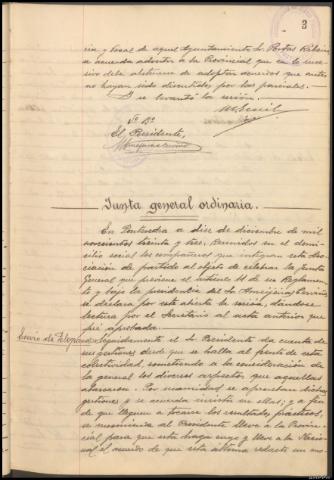 3
ria y local de aquel Ayuntamiento Sr. Portas Ribeiro
se acuerda advertir a la Provincial que en lo suce-
sivo debe abstenerse de adoptar acuerdos que antes
no hayan sido discutidos por las parciales.
Y se levantó la sesión.
Vº Bº
El Presidente,
Junta general ordinaria.
En Pontevedra a diez de diciembre de mil
novecientos treinta y tres. Reunidos en el domi-
cilio social los compañeros que integran esta Aso-
ciación de partido al objeto de celebrar la Junta
General que previene el artículo 11 de su Reglamen-
to bajo la presidencia del Sr.
se declara por este abierta la sesión, dándose
lectura por el Secretario al acta anterior que
fué aprobada.
Seguidamente el Sr. Presidente da cuenta de
sus gestiones desde que se halla al frente de esta
colectividad, sometiendo a la consideración de
la general los diversos aspectos que aquellas
abarcan. Por unanimidad se aprueban dichas
gestiones y se acuerda insistir en ellas; y a fin
de que lleguen a tocarse los resultados prácticos,
se encomienda al Presidente lleve a la Provin-
cial para que esta haga suyo y lleve a la Nacio-
nal el acuerdo de que esta última redacte un mo-